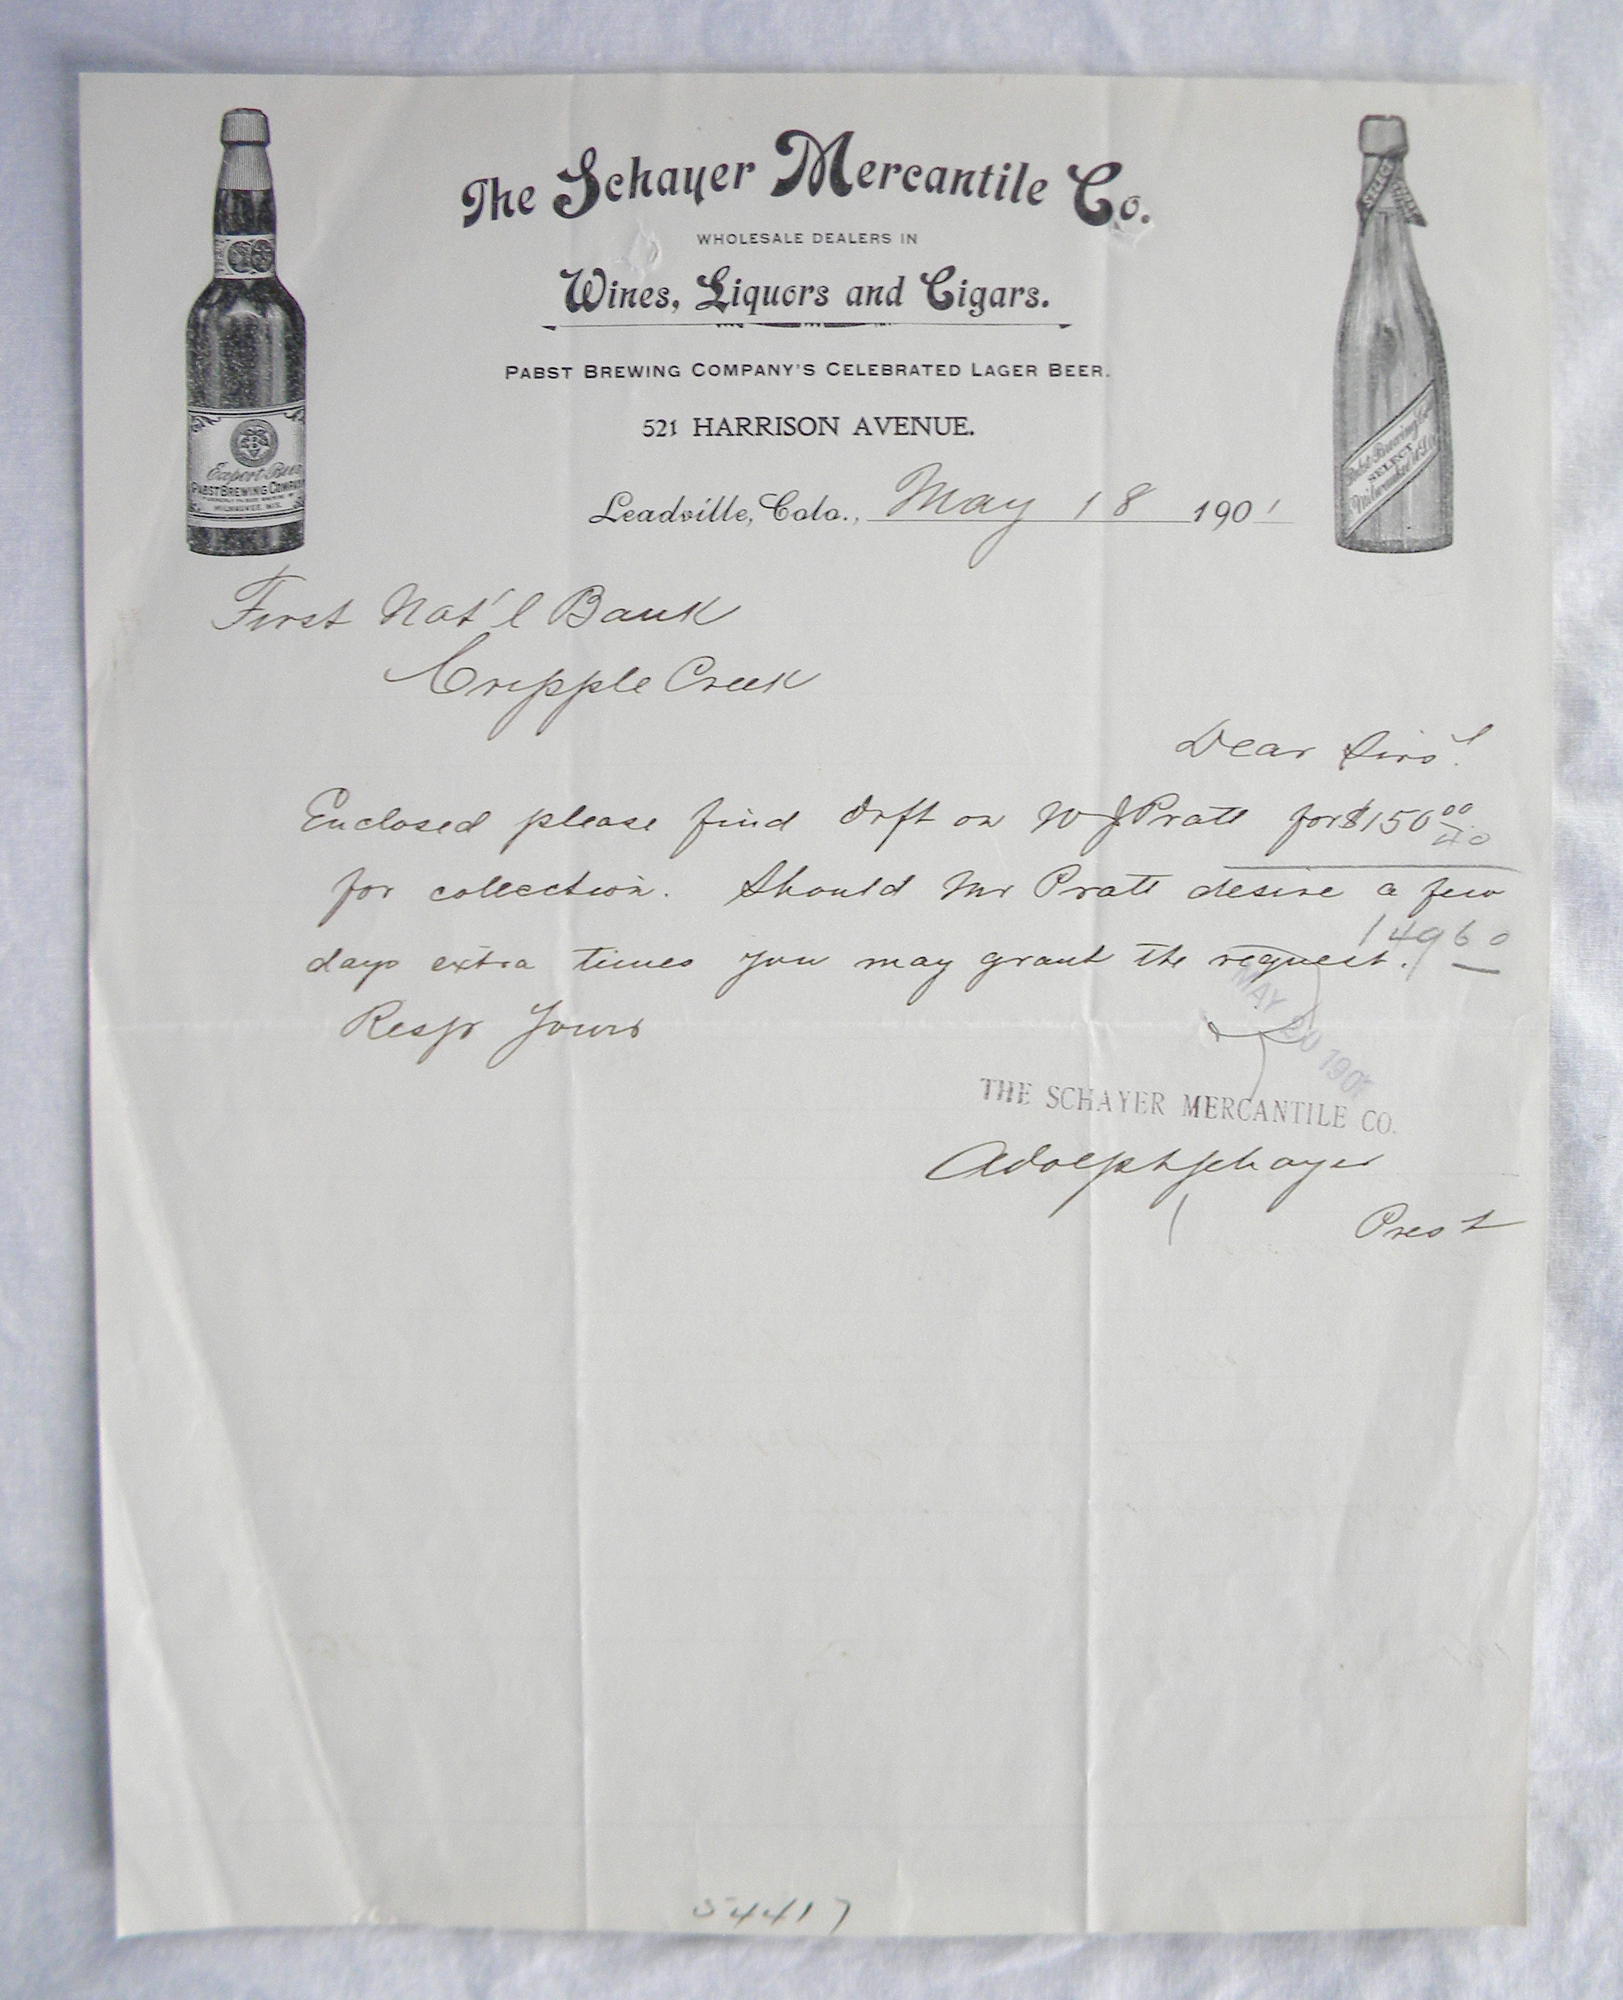 The Schayer Mercantile Co.
WHOLESALE DEALERS IN
Wines, Liquors and Cigars.
PABST BREWING COMPANY'S CELEBRATED LAGER BEER.
521 HARRISON AVENUE.
Leadville, Colo., May 18 1901
Export Beer
PABST BREWING COMPANY
MILWAUKEE, WIS.
SELECT
Pabst Brewing Co.
SELECT
Milwaukee Wis.
First Nat'l Bank
Cripple Creek
Dear Sirs!
Enclosed please find drft on W J Pratt for $150 00
40
for collection. Should Mr Pratt desire a few
149 60
days extra times you may grant the request.
Respt Yours
MAY 20 1901
THE SCHAYER MERCANTILE CO.
Adolph Schayer
Prest
54417